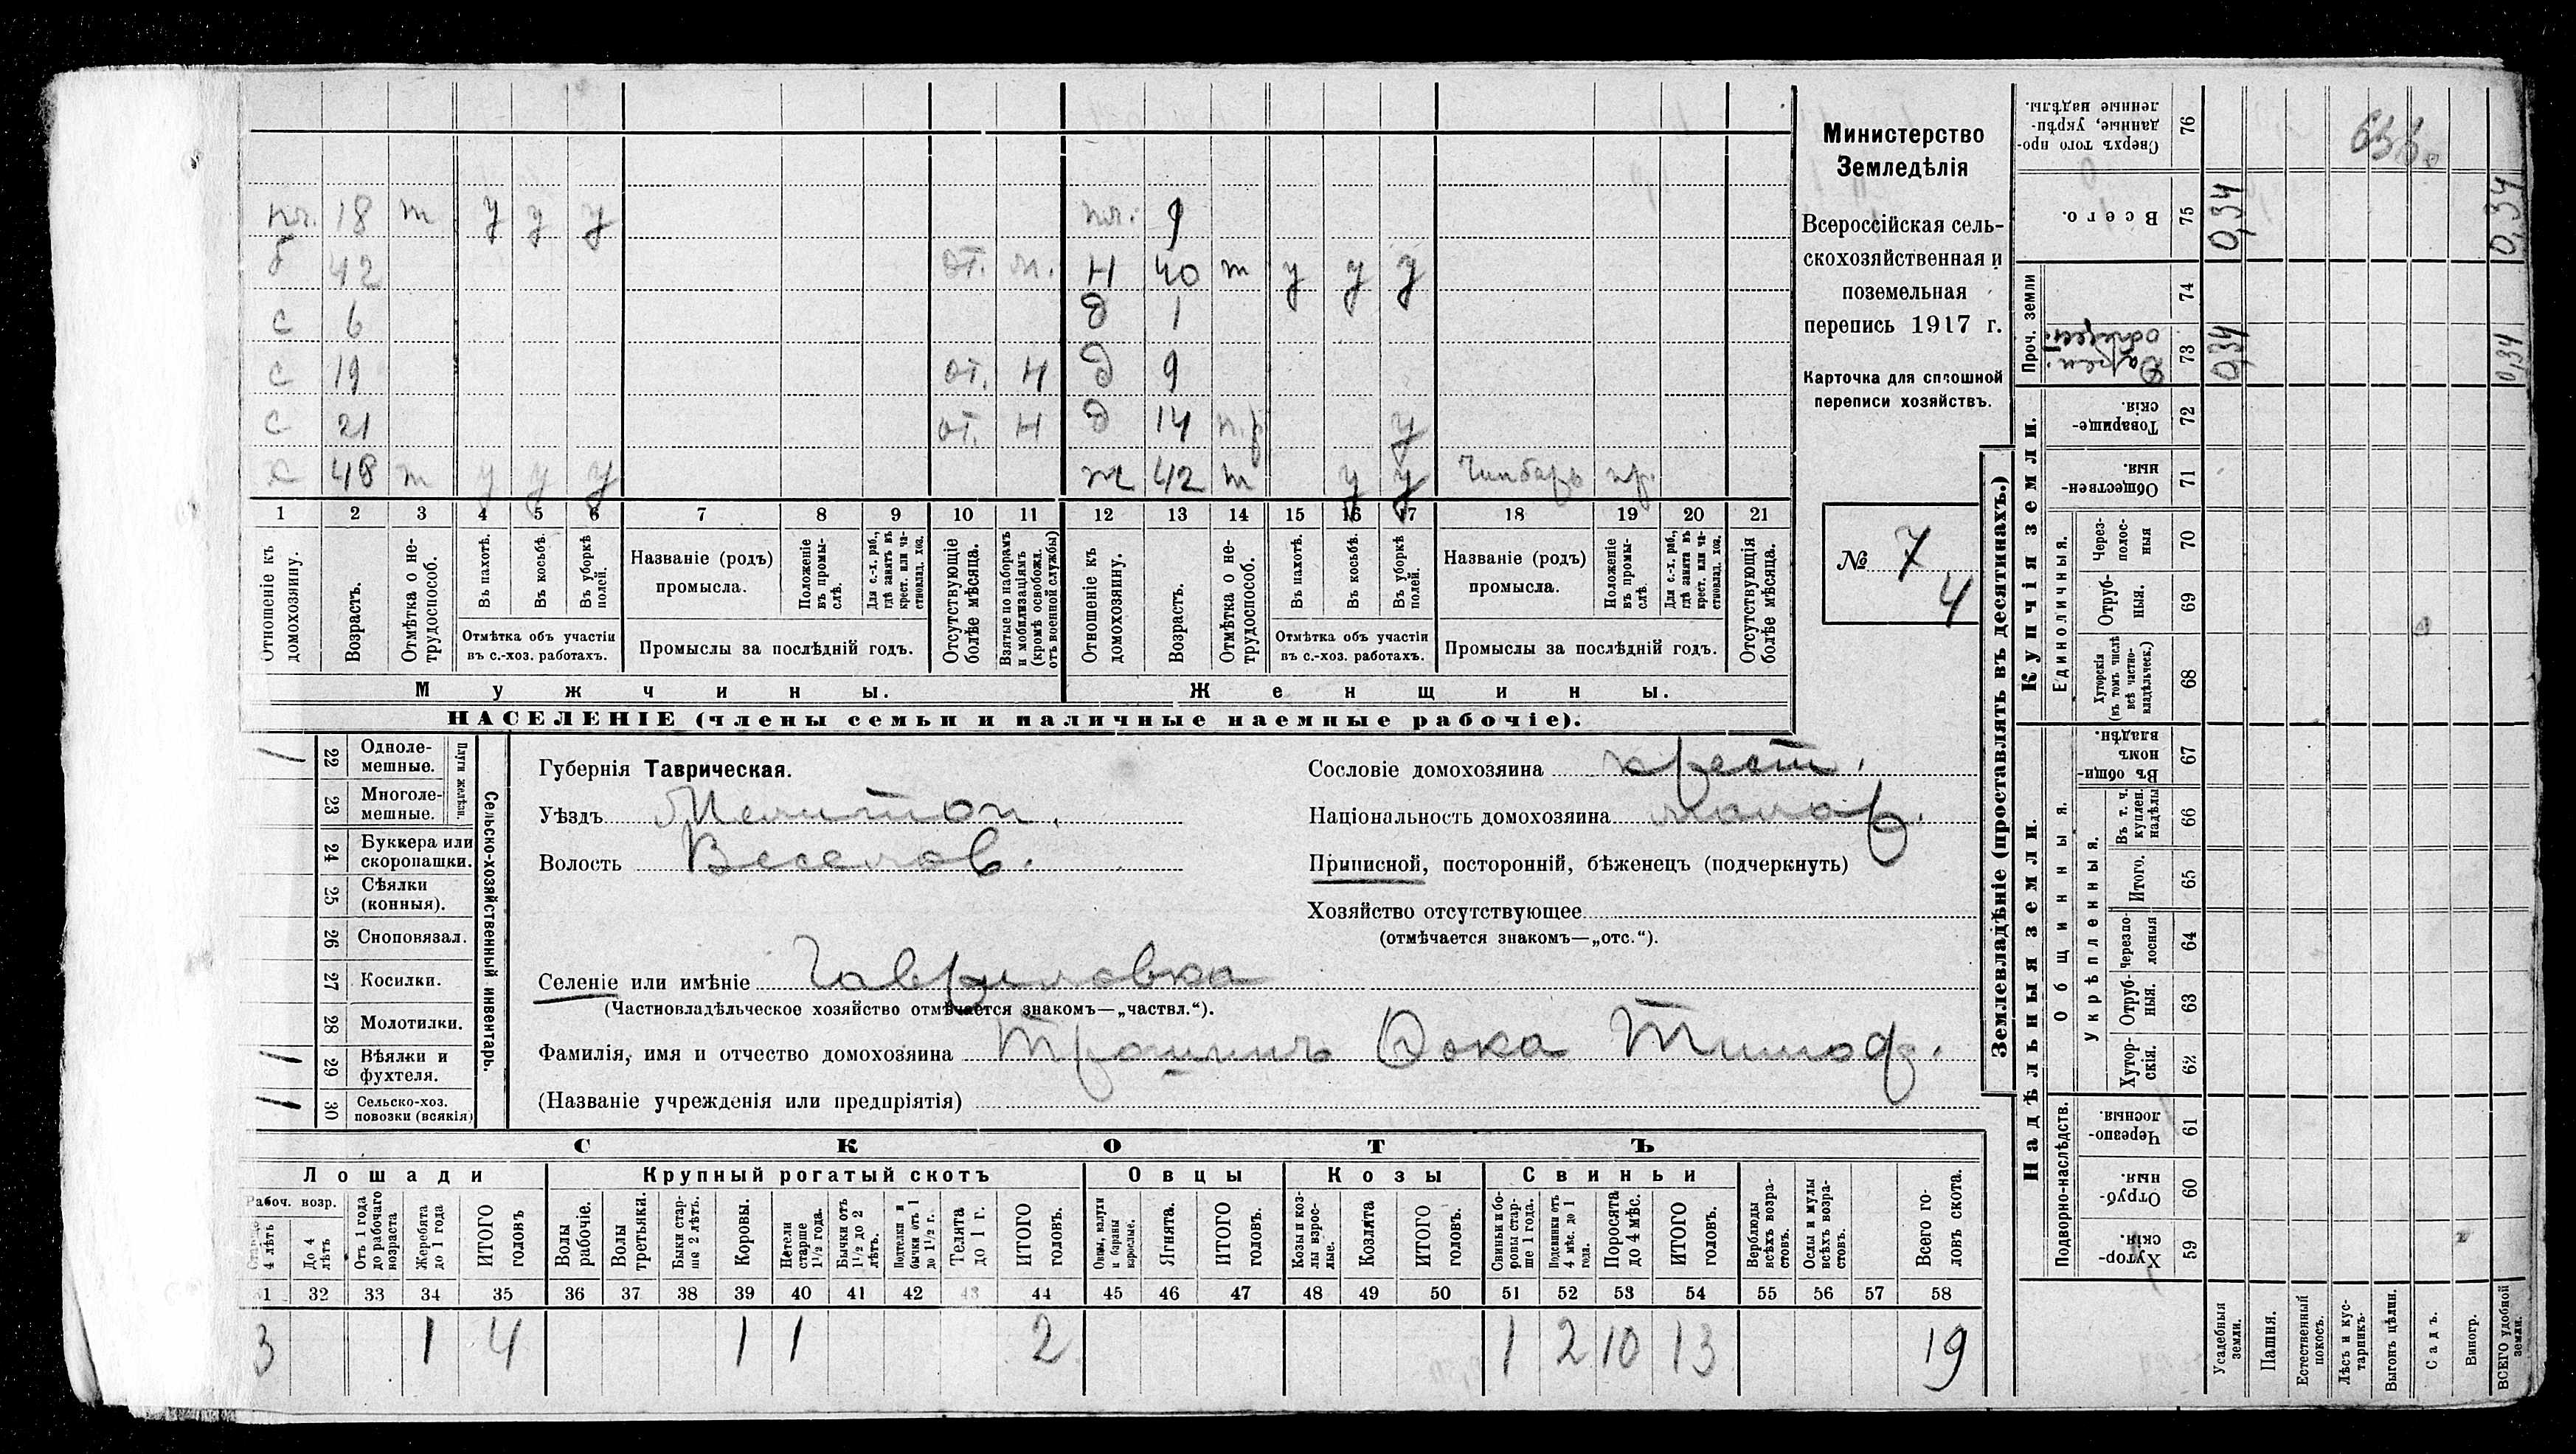 Министерство
Земледѣлія
Всероссійская сель-
скохозяйственная и
поземельная
перепись 1917 г.
Карточка для сплошной
переписи хозяйствъ.
№ 7
4
пл. 18 т у у у пл. 9
б 42 от. н. Н 40 т у у у
с 6 д 1
с 19 от. н д 9
с 21 от. н д 14 п.р у
х 48 т у у у ж 42 т у у
1 2 3 4 5 6 7 8 9 10 11 12 13 14 15 16 17 18 19 20 21
Отношеніе къ домохозяину.
Возрастъ.
Отмѣтка о не-
трудоспособ.
Въ пахотѣ.
Въ косьбѣ.
Въ уборкѣ
полей.
Отмѣтка объ участіи
въ с.-хоз. работахъ.
Названіе (родъ)
промысла.
Положеніе
въ промы-
слѣ.
Для с.-х. раб.,
гдѣ занятъ въ
крест. или ча-
стновлад. хоз.
Промыслы за послѣдній годъ.
Отсутствующіе
болѣе мѣсяца.
Взятые по наборамъ
и мобилизаціямъ
(кромѣ освобожд.
отъ военной службы)
Отношеніе къ
домохозяину.
Возрастъ.
Отмѣтка о не-
трудоспособ.
Въ пахотѣ.
Въ косьбѣ.
Въ уборкѣ
полей.
Отмѣтка объ участіи
въ с.-хоз. работахъ.
Названіе (родъ)
промысла.
Положеніе
въ промы-
слѣ.
Для с.-х. раб.,
гдѣ занята въ
крест. или ча-
стновлад. хоз.
Промыслы за послѣдній годъ.
Отсутствующія
болѣе мѣсяца.
Мужчины. Женщины.
НАСЕЛЕНІЕ (члены семьи и наличные наемные рабочіе).
22 Одноле-
мешные.
23 Многоле-
мешные.
Плуги желѣзн.
24 Буккера или
скоропашки.
25 Сѣялки
(конныя).
26 Сноповязал.
27 Косилки.
28 Молотилки.
29 Вѣялки и
фухтеля.
30 Сельско-хоз.
повозки (всякія)
Сельско-хозяйственный инвентарь.
Губернія Таврическая.
Уѣздъ Мелитоп.
Волость Веселов.
Сословіе домохозяина крест.
Національность домохозяина малор.
Приписной, посторонній, бѣженецъ (подчеркнуть)
Хозяйство отсутствующее
(отмѣчается знакомъ—„отс.“).
Селеніе или имѣніе Гавриловка
(Частновладѣльческое хозяйство отмѣчается знакомъ—„частвл.“).
Фамилія, имя и отчество домохозяина Тимоф.
(Названіе учрежденія или предпріятія)
СКОТЪ
Лошади Крупный рогатый скотъ Овцы Козы Свиньи
Рабоч. возр.
4 лѣтъ
До 4
лѣтъ
Отъ 1 года
до рабочаго
возраста
Жеребята
до 1 года
ИТОГО
головъ
Волы
рабочіе.
Волы
третьяки.
Быки стар-
ше 2 лѣтъ.
Коровы.
Нетели
старше
1½ года.
Бычки отъ
1½ до 2
лѣтъ.
Подтелки и
бычки отъ 1
до 1½ г.
Телята
до 1 г.
ИТОГО
головъ.
Овцы, валухи
и бараны
взрослые.
Ягнята.
ИТОГО
головъ.
Козы и коз-
лы взрос-
лые.
Козлята
ИТОГО
головъ.
Свиньи и бо-
ровы стар-
ше 1 года.
Подсвинки отъ
4 мѣс. до 1
года.
Поросята
до 4 мѣс.
ИТОГО
головъ.
Верблюды
всѣхъ возра-
стовъ.
Ослы и мулы
всѣхъ возра-
стовъ.
Всего го-
ловъ скота.
32 33 34 35 36 37 38 39 40 41 42 43 44 45 46 47 48 49 50 51 52 53 54 55 56 57 58
3 1 4 1 1 2 1 2 10 13 19
Землевладѣніе (проставлять въ десятинахъ.)
Надѣльныя земли. Купчія земли.
Проч. земли
Сверхъ того про-
данные, укрѣп-
ленные надѣлы. 76
Всего. 75 0,34 0,34
74
Арен. общест. 73 0,34 0,34
Товарище-
скія. 72
Обществен-
ныя. 71
Единоличныя.
Через-
полос-
ныя 70
Отруб-
ныя. 69
Хуторскія
(въ томъ числѣ
всѣ частно-
владѣльческ.) 68
Общинныя.
Въ общи-
номъ
владѣн. 67
Укрѣпленныя.
Въ т. ч.
куплен.
надѣлы 66
Итого. 65
Черезпо-
лосныя 64
Отруб-
ныя. 63
Хутор-
скія. 62
Подворно-наслѣдств.
Черезпо-
лосныя 61
Отруб-
ныя 60
Хутор-
скія. 59
Усадебныя
земли.
Пашня.
Естественный
покосъ.
Лѣсъ и кус-
тарникъ.
Выгонъ цѣлин.
Садъ.
Виногр.
ВСЕГО удобной
земли.